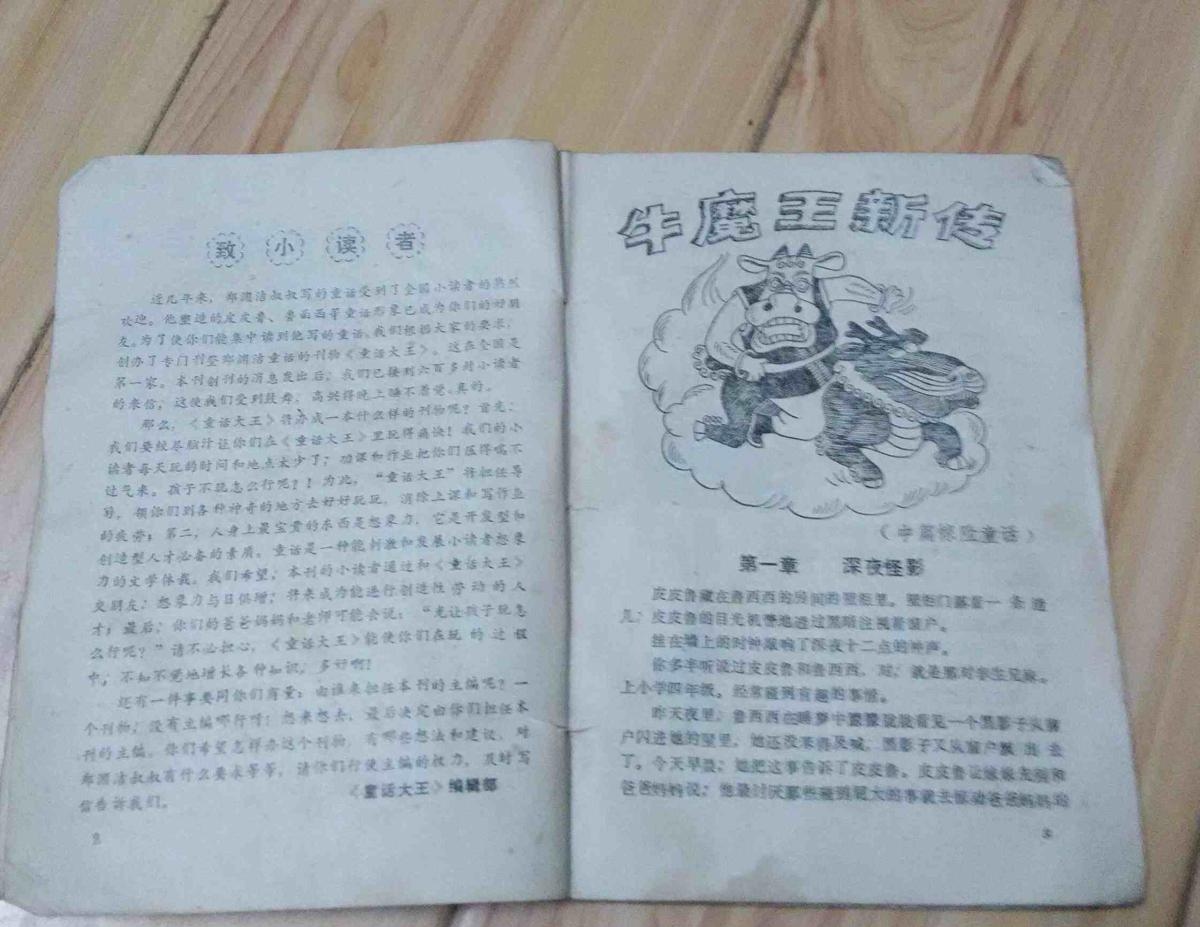 致小读者
近几年来，郑渊洁叔叔写的童话受到了全国小读者的热烈
欢迎。他塑造的皮皮鲁、鲁西西等童话形象已成为你们的好朋
友。为了使你们能集中读到他写的童话，我们根据大家的要求，
创办了专门刊登郑渊洁童话的刊物《童话大王》。这在全国是
第一家。本刊创刊的消息发出后，我们已接到六百多封小读者
的来信，这使我们受到鼓舞，高兴得晚上睡不着觉。真的。
那么，《童话大王》将办成一本什么样的刊物呢？首先，
我们要绞尽脑汁让你们在《童话大王》里玩得痛快！我们的小
读者每天玩的时间和地点太少了；功课和作业把你们压得喘不
过气来。孩子不玩怎么行呢？！为此，“童话大王”将担任导
游，领你们到各种神奇的地方去好好玩玩，消除上课和写作业
的疲劳；第二，人身上最宝贵的东西是想象力，它是开发型和
创造型人才必备的素质。童话是一种能刺激和发展小读者想象
力的文学体裁。我们希望，本刊的小读者通过和《童话大王》
交朋友，想象力与日俱增，将来成为能进行创造性劳动的人
才；最后，你们的爸爸妈妈和老师可能会说：“光让孩子玩怎
么行呢？”请不必担心，《童话大王》能使你们在玩的过程
中，不知不觉地增长各种知识，多好啊！
还有一件事要同你们商量：由谁来担任本刊的主编呢？一
个刊物，没有主编哪行呀！想来想去，最后决定由你们担任本
刊的主编。你们希望怎样办这个刊物，有哪些想法和建议，对
郑渊洁叔叔有什么要求等等，请你们行使主编的权力，及时写
信告诉我们。
《童话大王》编辑部
2
牛魔王新传
（中篇惊险童话）
第一章 深夜怪影
皮皮鲁藏在鲁西西的房间的壁柜里。壁柜门露着一条缝
儿，皮皮鲁的目光机警地透过黑暗注视着窗户。
挂在墙上的时钟敲响了深夜十二点的钟声。
你多半听说过皮皮鲁和鲁西西，对，就是那对孪生兄妹。
上小学四年级。经常碰到有趣的事情。
昨天夜里，鲁西西在睡梦中朦朦胧胧看见一个黑影子从窗
户闪进她的屋里，她还没来得及喊，黑影子又从窗户飘出去
了。今天早晨，她把这事告诉了皮皮鲁。皮皮鲁让妹妹先别和
爸爸妈妈说，他最讨厌那些碰到屁大的事就去惊动爸爸妈妈的
3